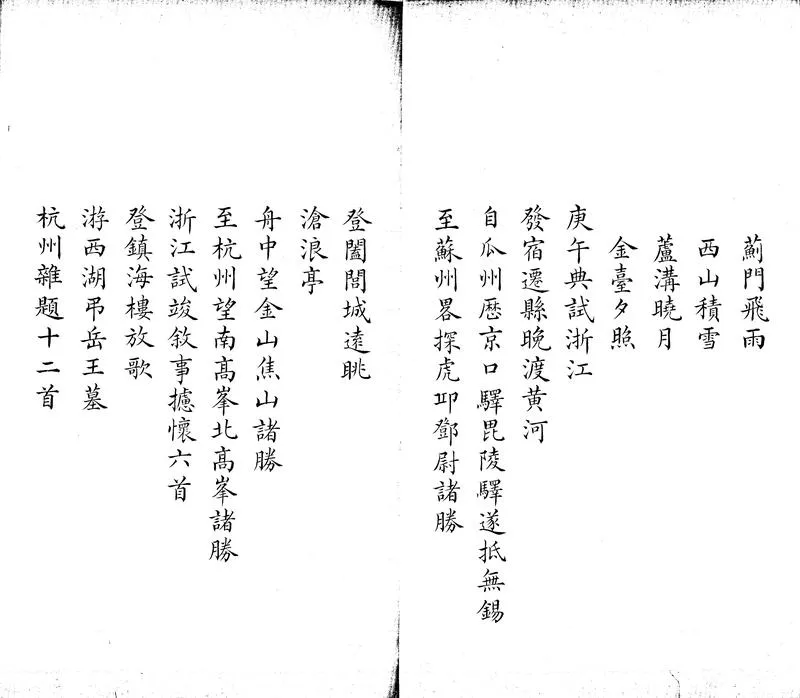 薊門飛雨
西山積雪
蘆溝曉月
金臺夕照
庚午典試浙江
發宿遷縣晚渡黄河
自瓜州歷京口驛毘陵驛遂抵無錫
至蘇州畧探虎邱鄧尉諸勝
登闔閭城遠眺
滄浪亭
舟中望金山焦山諸勝
至杭州望南高峯北高峯諸勝
浙江試竣敘事攄懷六首
登鎮海樓放歌
游西湖弔岳王墓
杭州雜題十二首